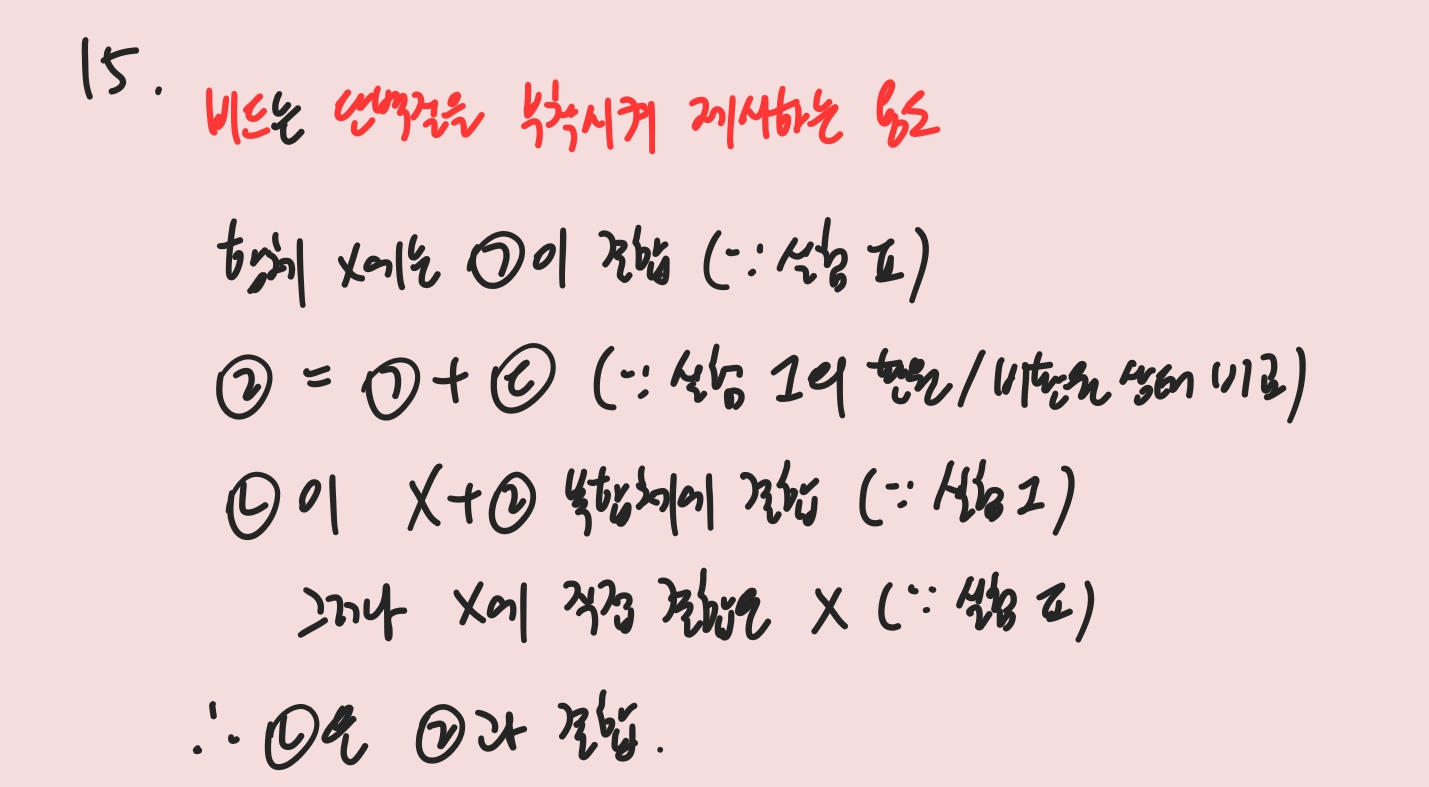 15.
비드는 단백질을 부착시켜 제시하는 용도
항체 X에는 ㉠이 결합 (∵ 실험 Ⅱ)
㉣ = ㉠ + ㉢ (∵ 실험 1의 환원/비환원 상태 비교)
㉡이 X+㉣ 복합체에 결합 (∵ 실험 1)
그러나 X에 직접 결합은 X (∵ 실험 Ⅱ)
∴ ㉡은 ㉣과 결합.